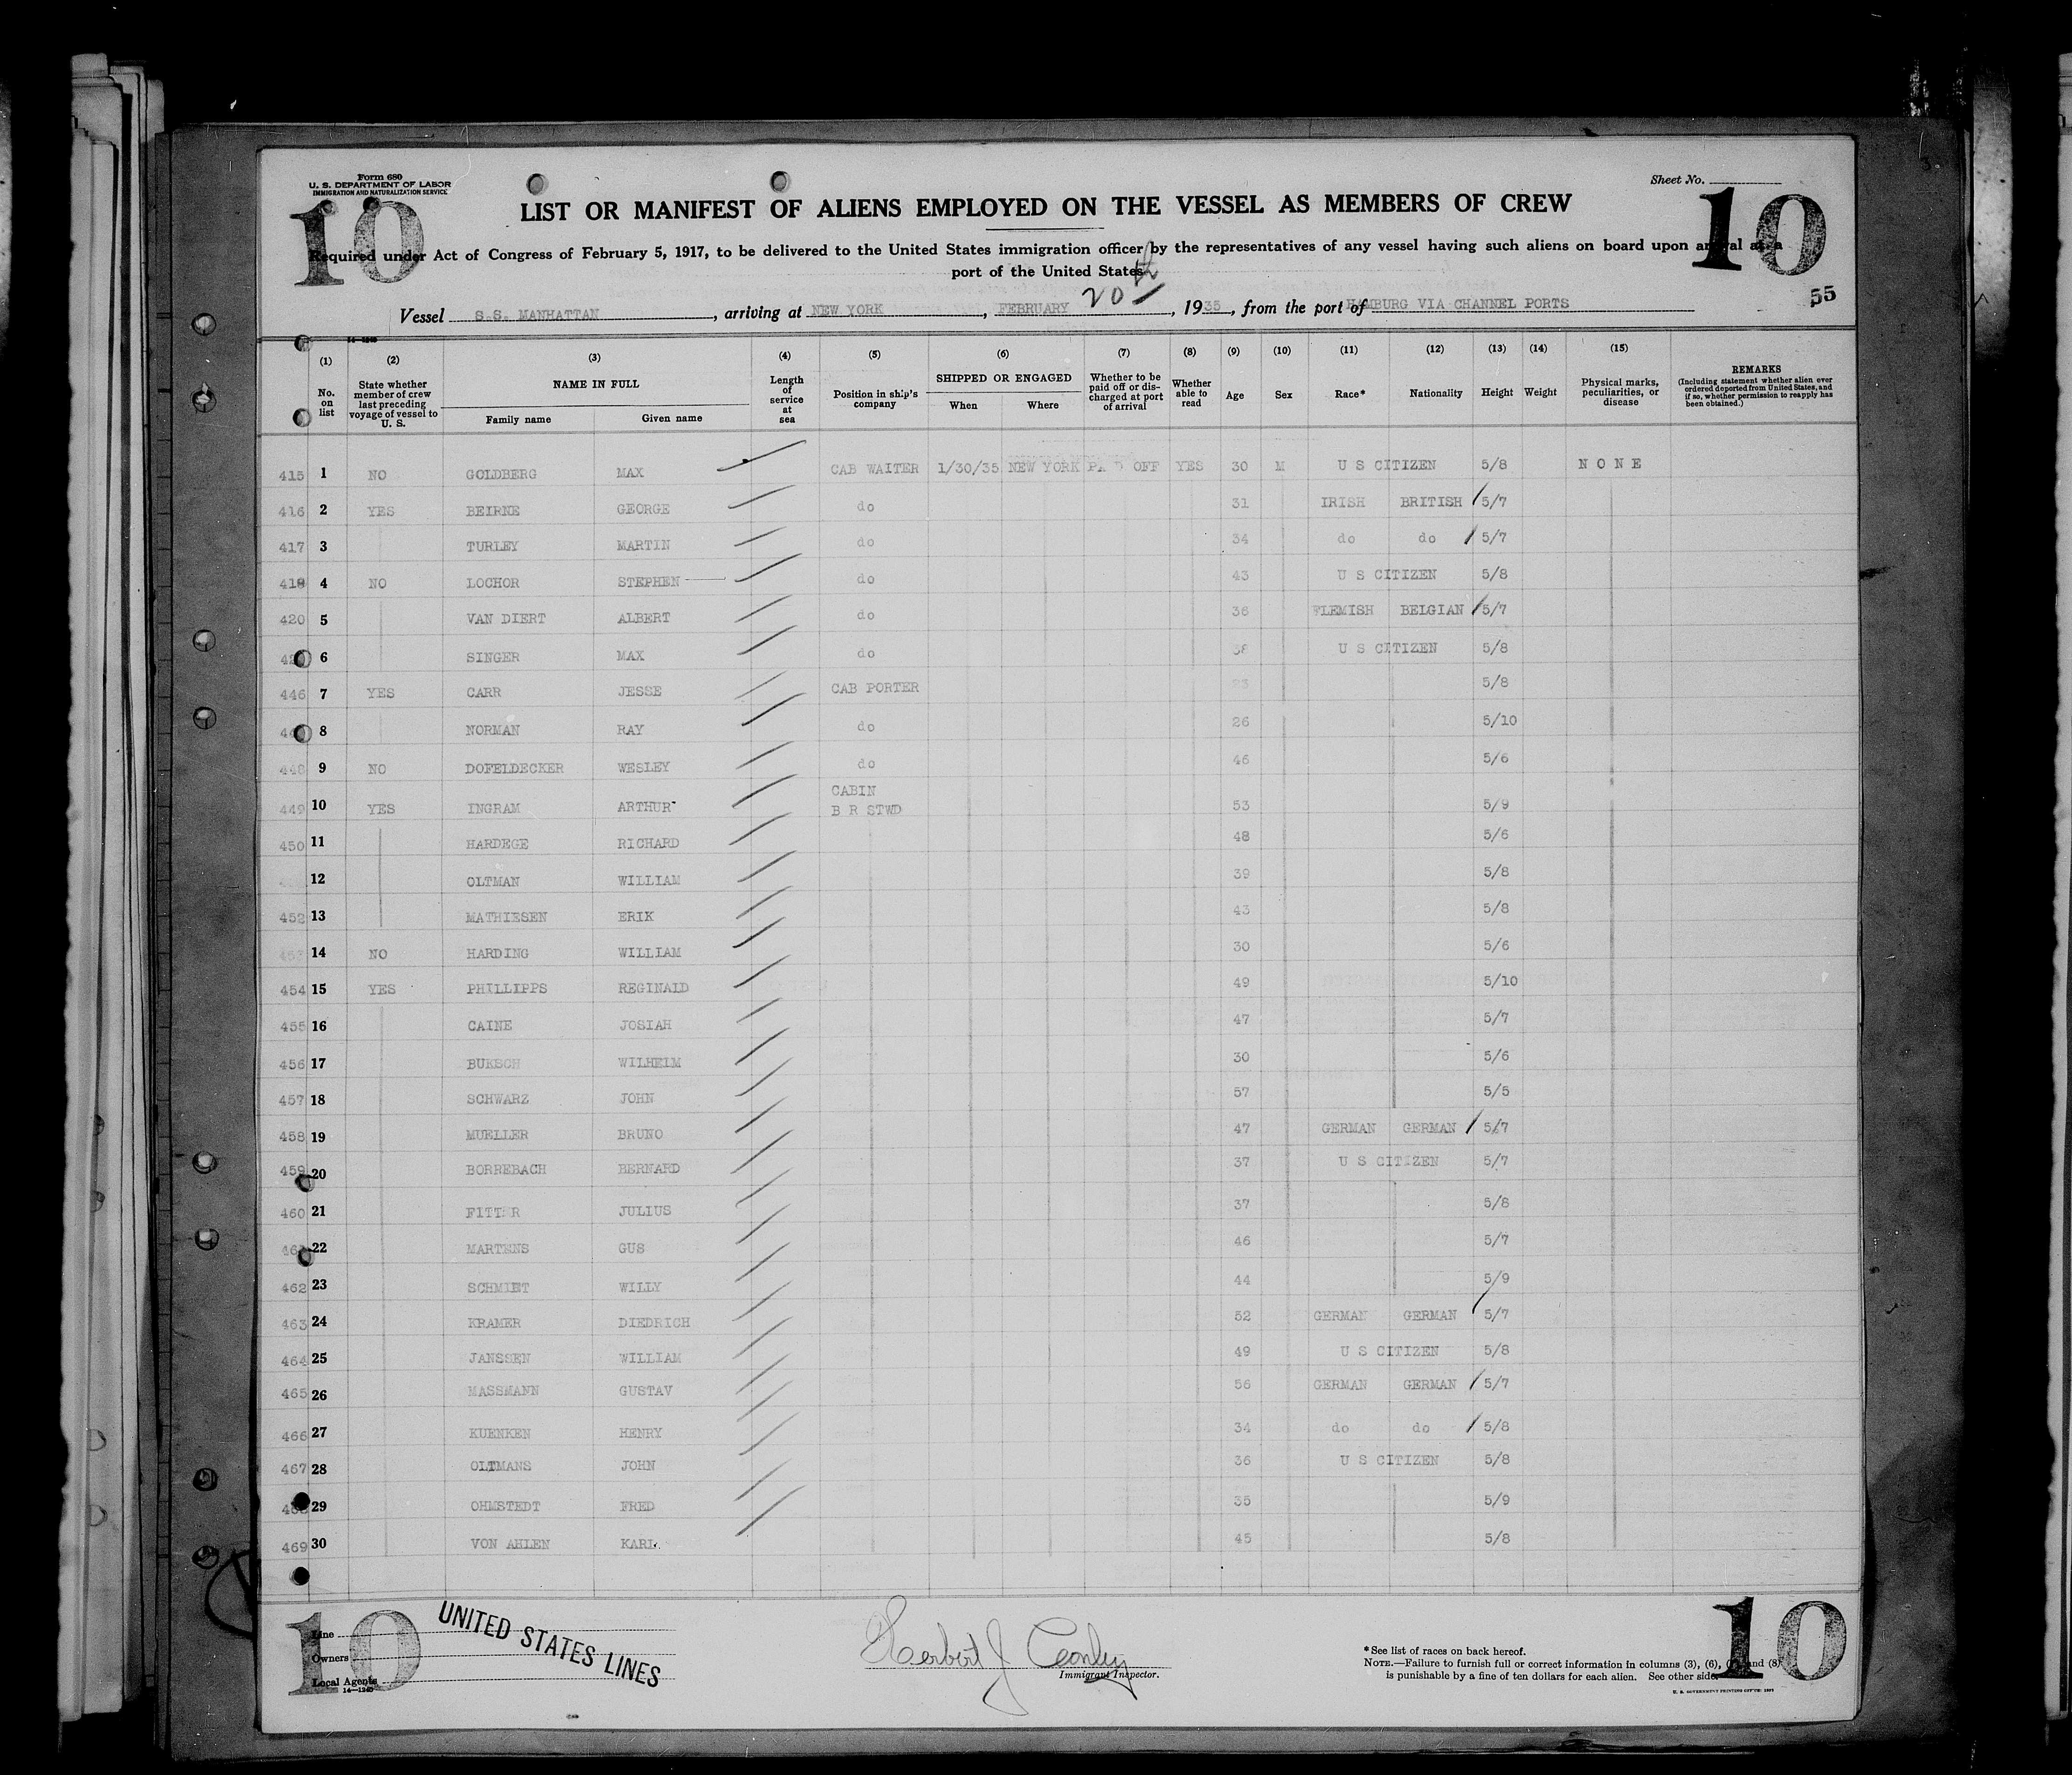 Form 680
U. S. DEPARTMENT OF LABOR
IMMIGRATION AND NATURALIZATION SERVICE
10
Sheet No.
10
LIST OR MANIFEST OF ALIENS EMPLOYED ON THE VESSEL AS MEMBERS OF CREW
Required under Act of Congress of February 5, 1917, to be delivered to the United States immigration officer by the representatives of any vessel having such aliens on board upon arrival at a
port of the United States
Vessel S.S. MANHATTAN, arriving at NEW YORK, FEBRUARY 20th, 1935, from the port of HAMBURG VIA CHANNEL PORTS
55
(1) No. on list (2) State whether member of crew last preceding voyage of vessel to U. S. (3) NAME IN FULL Family name Given name (4) Length of service at sea (5) Position in ship's company (6) SHIPPED OR ENGAGED When Where (7) Whether to be paid off or discharged at port of arrival (8) Whether able to read (9) Age (10) Sex (11) Race* (12) Nationality (13) Height (14) Weight (15) Physical marks, peculiarities, or disease REMARKS (Including statement whether alien ever ordered deported from United States, and if so, whether permission to reapply has been obtained.)
415 1 NO GOLDBERG MAX CAB WAITER 1/30/35 NEW YORK PAID OFF YES 30 M U S CITIZEN 5/8 NONE
416 2 YES BEIRNE GEORGE do 31 IRISH BRITISH 5/7
417 3 TURLEY MARTIN do 34 do do 5/7
419 4 NO LOCHOR STEPHEN do 43 U S CITIZEN 5/8
420 5 VAN DIERT ALBERT do 36 FLEMISH BELGIAN 5/7
6 SINGER MAX do U S CITIZEN 5/8
446 7 YES CARR JESSE CAB PORTER 5/8
8 NORMAN RAY do 26 5/10
448 9 NO DOFELDECKER WESLEY do 46 5/6
449 10 YES INGRAM ARTHUR CABIN B R STWD 53 5/9
450 11 HARDEGE RICHARD 48 5/6
12 OLTMAN WILLIAM 39 5/8
452 13 MATHIESEN ERIK 43 5/8
453 14 NO HARDING WILLIAM 30 5/6
454 15 YES PHILLIPPS REGINALD 49 5/10
455 16 CAINE JOSIAH 47 5/7
456 17 BUKSCH WILHELM 30 5/6
457 18 SCHWARZ JOHN 57 5/5
458 19 MUELLER BRUNO 47 GERMAN GERMAN 5/7
459 20 BORREBACH BERNARD 37 U S CITIZEN 5/7
460 21 FITTER JULIUS 37 5/8
461 22 MARTENS GUS 46 5/7
462 23 SCHMIET WILLY 44 5/9
463 24 KRAMER DIEDRICH 52 GERMAN GERMAN 5/7
464 25 JANSSEN WILLIAM 49 U S CITIZEN 5/8
465 26 MASSMANN GUSTAV 56 GERMAN GERMAN 5/7
466 27 KUENKEN HENRY 34 do do 5/8
467 28 OLTMANS JOHN 36 U S CITIZEN 5/8
29 OHMSTEDT FRED 35 5/9
469 30 VON AHLEN KARL 45 5/8
10
Line
Owners
Local Agents
14—1240
UNITED STATES LINES
Herbert J
Immigrant Inspector.
* See list of races on back hereof.
NOTE.—Failure to furnish full or correct information in columns (3), (6), and (8)
is punishable by a fine of ten dollars for each alien. See other side
U. S. GOVERNMENT PRINTING OFFICE
10